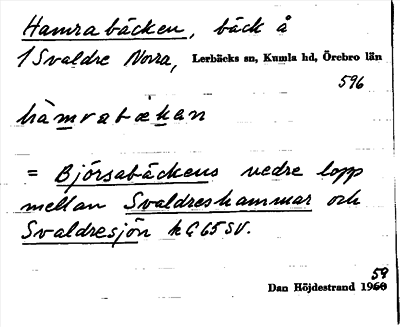 Hamrabäcken, bäck å
1 Svaldre Norra, Lerbäcks sn, Kumla hd, Örebro län
596
hàmrabækan
= Björsabäckens nedre lopp
mellan Svaldreshammar och
Svaldresjön kG65SV.
59
Dan Höjdestrand 1960